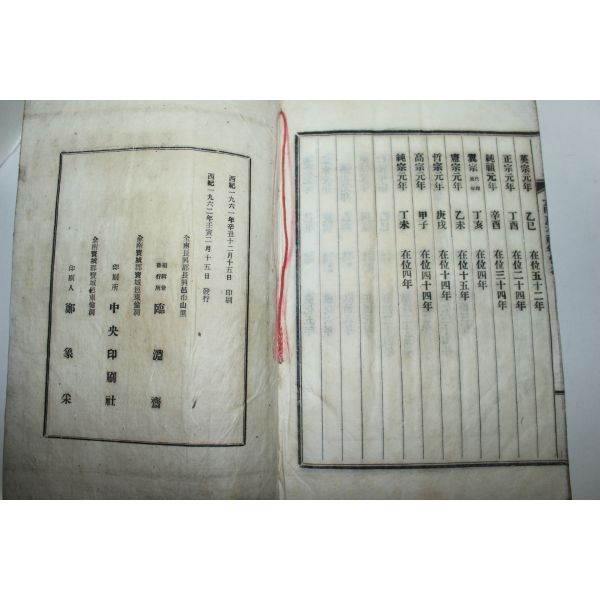 英宗元年 乙巳 在位五十二年
正宗元年 丁酉 在位二十四年
純祖元年 辛酉 在位三十四年
翼宗 丁亥 在位四年
憲宗元年 乙未 在位十五年
哲宗元年 庚戌 在位十四年
高宗元年 甲子 在位四十四年
純宗元年 丁未 在位四年
西紀一九六一年辛丑十二月十五日 印刷
西紀一九六二年壬寅二月十五日 發行
全南長興郡長興邑市山里
臨淵齋
全南寶城郡寶城邑東倫洞
印刷所 中央印刷社
全南寶城郡寶城邑東倫洞
印刷人 鄭象采